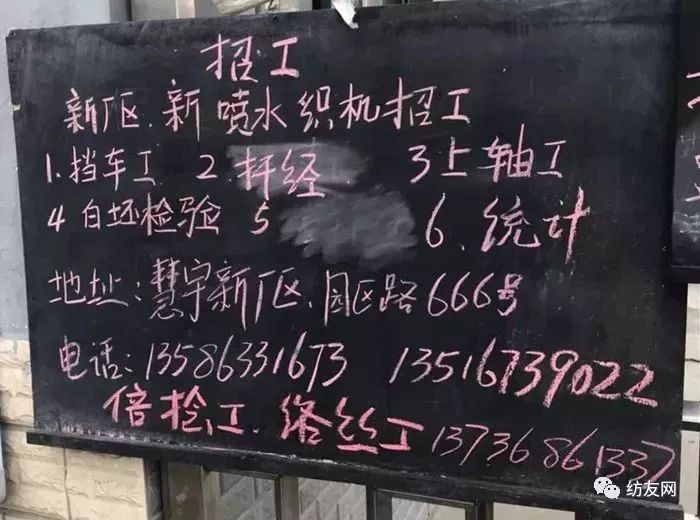 招工
新厂区.新喷水织机招工
1.挡车工 2 扦经 3上轴工
4 白坯检验 5 6、统计
地址:慧宇新厂区、园区路666号
电话:13586331673 13516739022
倍捻工、络丝工 13736861337
纺友网